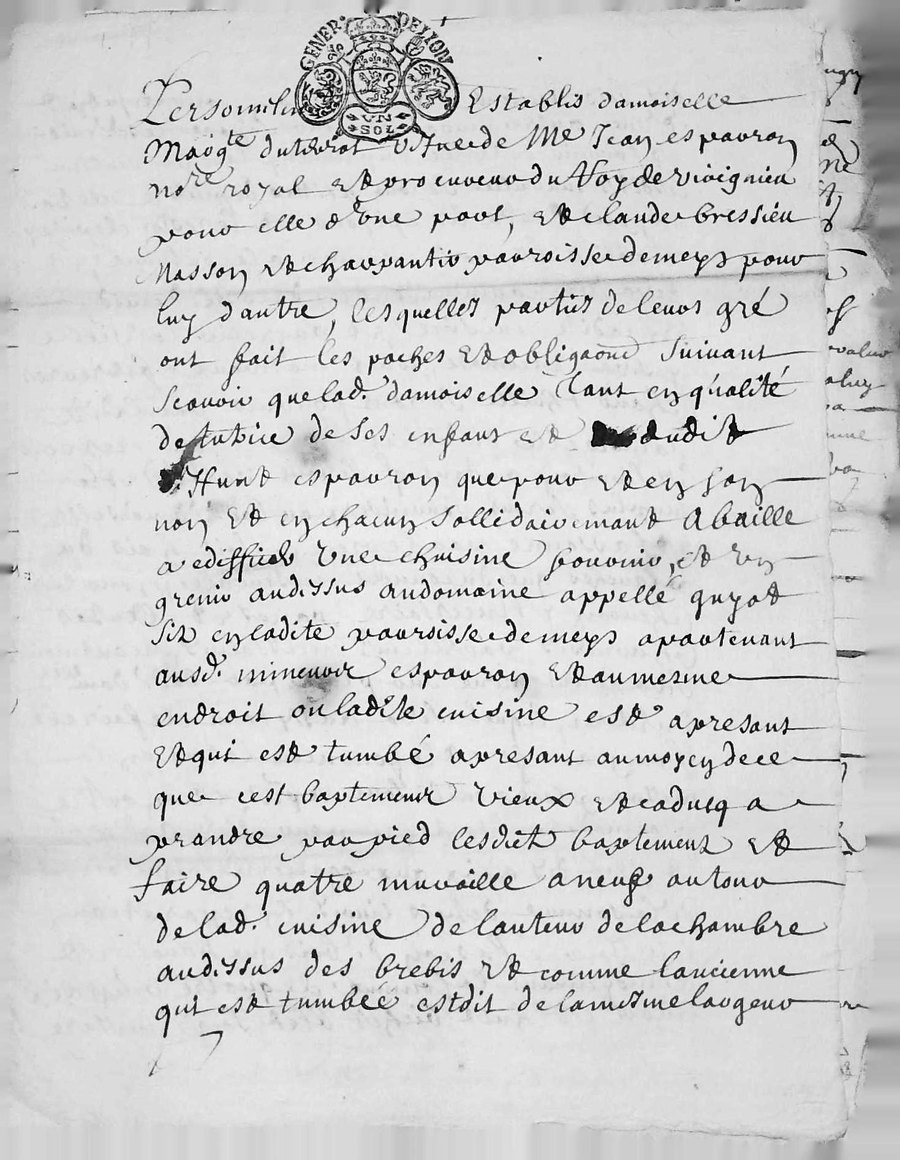 GENER. DE LION
UN SOL
Personnel Establis damoiselle
Margte duterrat vefue de Me Jean esparron
nore royal et procureur du Roy de virignieu
pour elle d'une part, et claude bressieu
Masson et charpantir parroisse de meys pour
luy d'autre, lesquelles parties de leurs gré
ont fait les paches et obligaons suivant
scavoir que lad. damoiselle tant en qualité
de tutrice de ses enfant et dudit
esparron que pour et en son
non et en chacun sollidairemant abaille
a ediffier une chuisine et un
grenir audissus au domaine appellé guyot
sis en ladite parroisse de meys apartenant
ausd. mineurs esparron et au mesme
endroit ou ladite cuisine est apresant
et qui est tumbé apresant au moyen de ce
que cest baptement vieux et caducq a
prandre par pied lesdict baptement et
faire quatre muraille a neuf autour
de lad. cuisine de lauteur de la chambre
audissus des brebis et comme l'ancienne
qui est tumbéé estdit de la mesme largeur